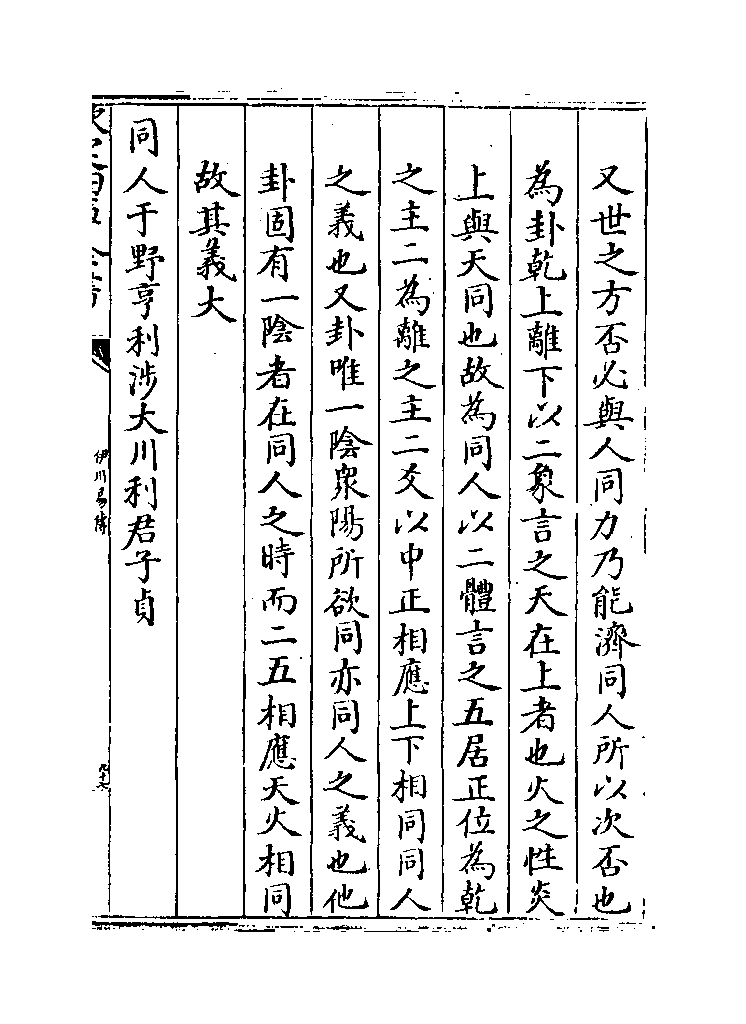 又世之方否必與人同力乃能濟同人所以次否也
為卦乾上離下以二象言之天在上者也火之性炎
上與天同也故為同人以二體言之五居正位為乾
之主二為離之主二爻以中正相應上下相同同人
之義也又卦唯一陰衆陽所欲同亦同人之義也他
卦固有一陰者在同人之時而二五相應天火相同
故其義大
同人于野亨利涉大川利君子貞
伊川易傳